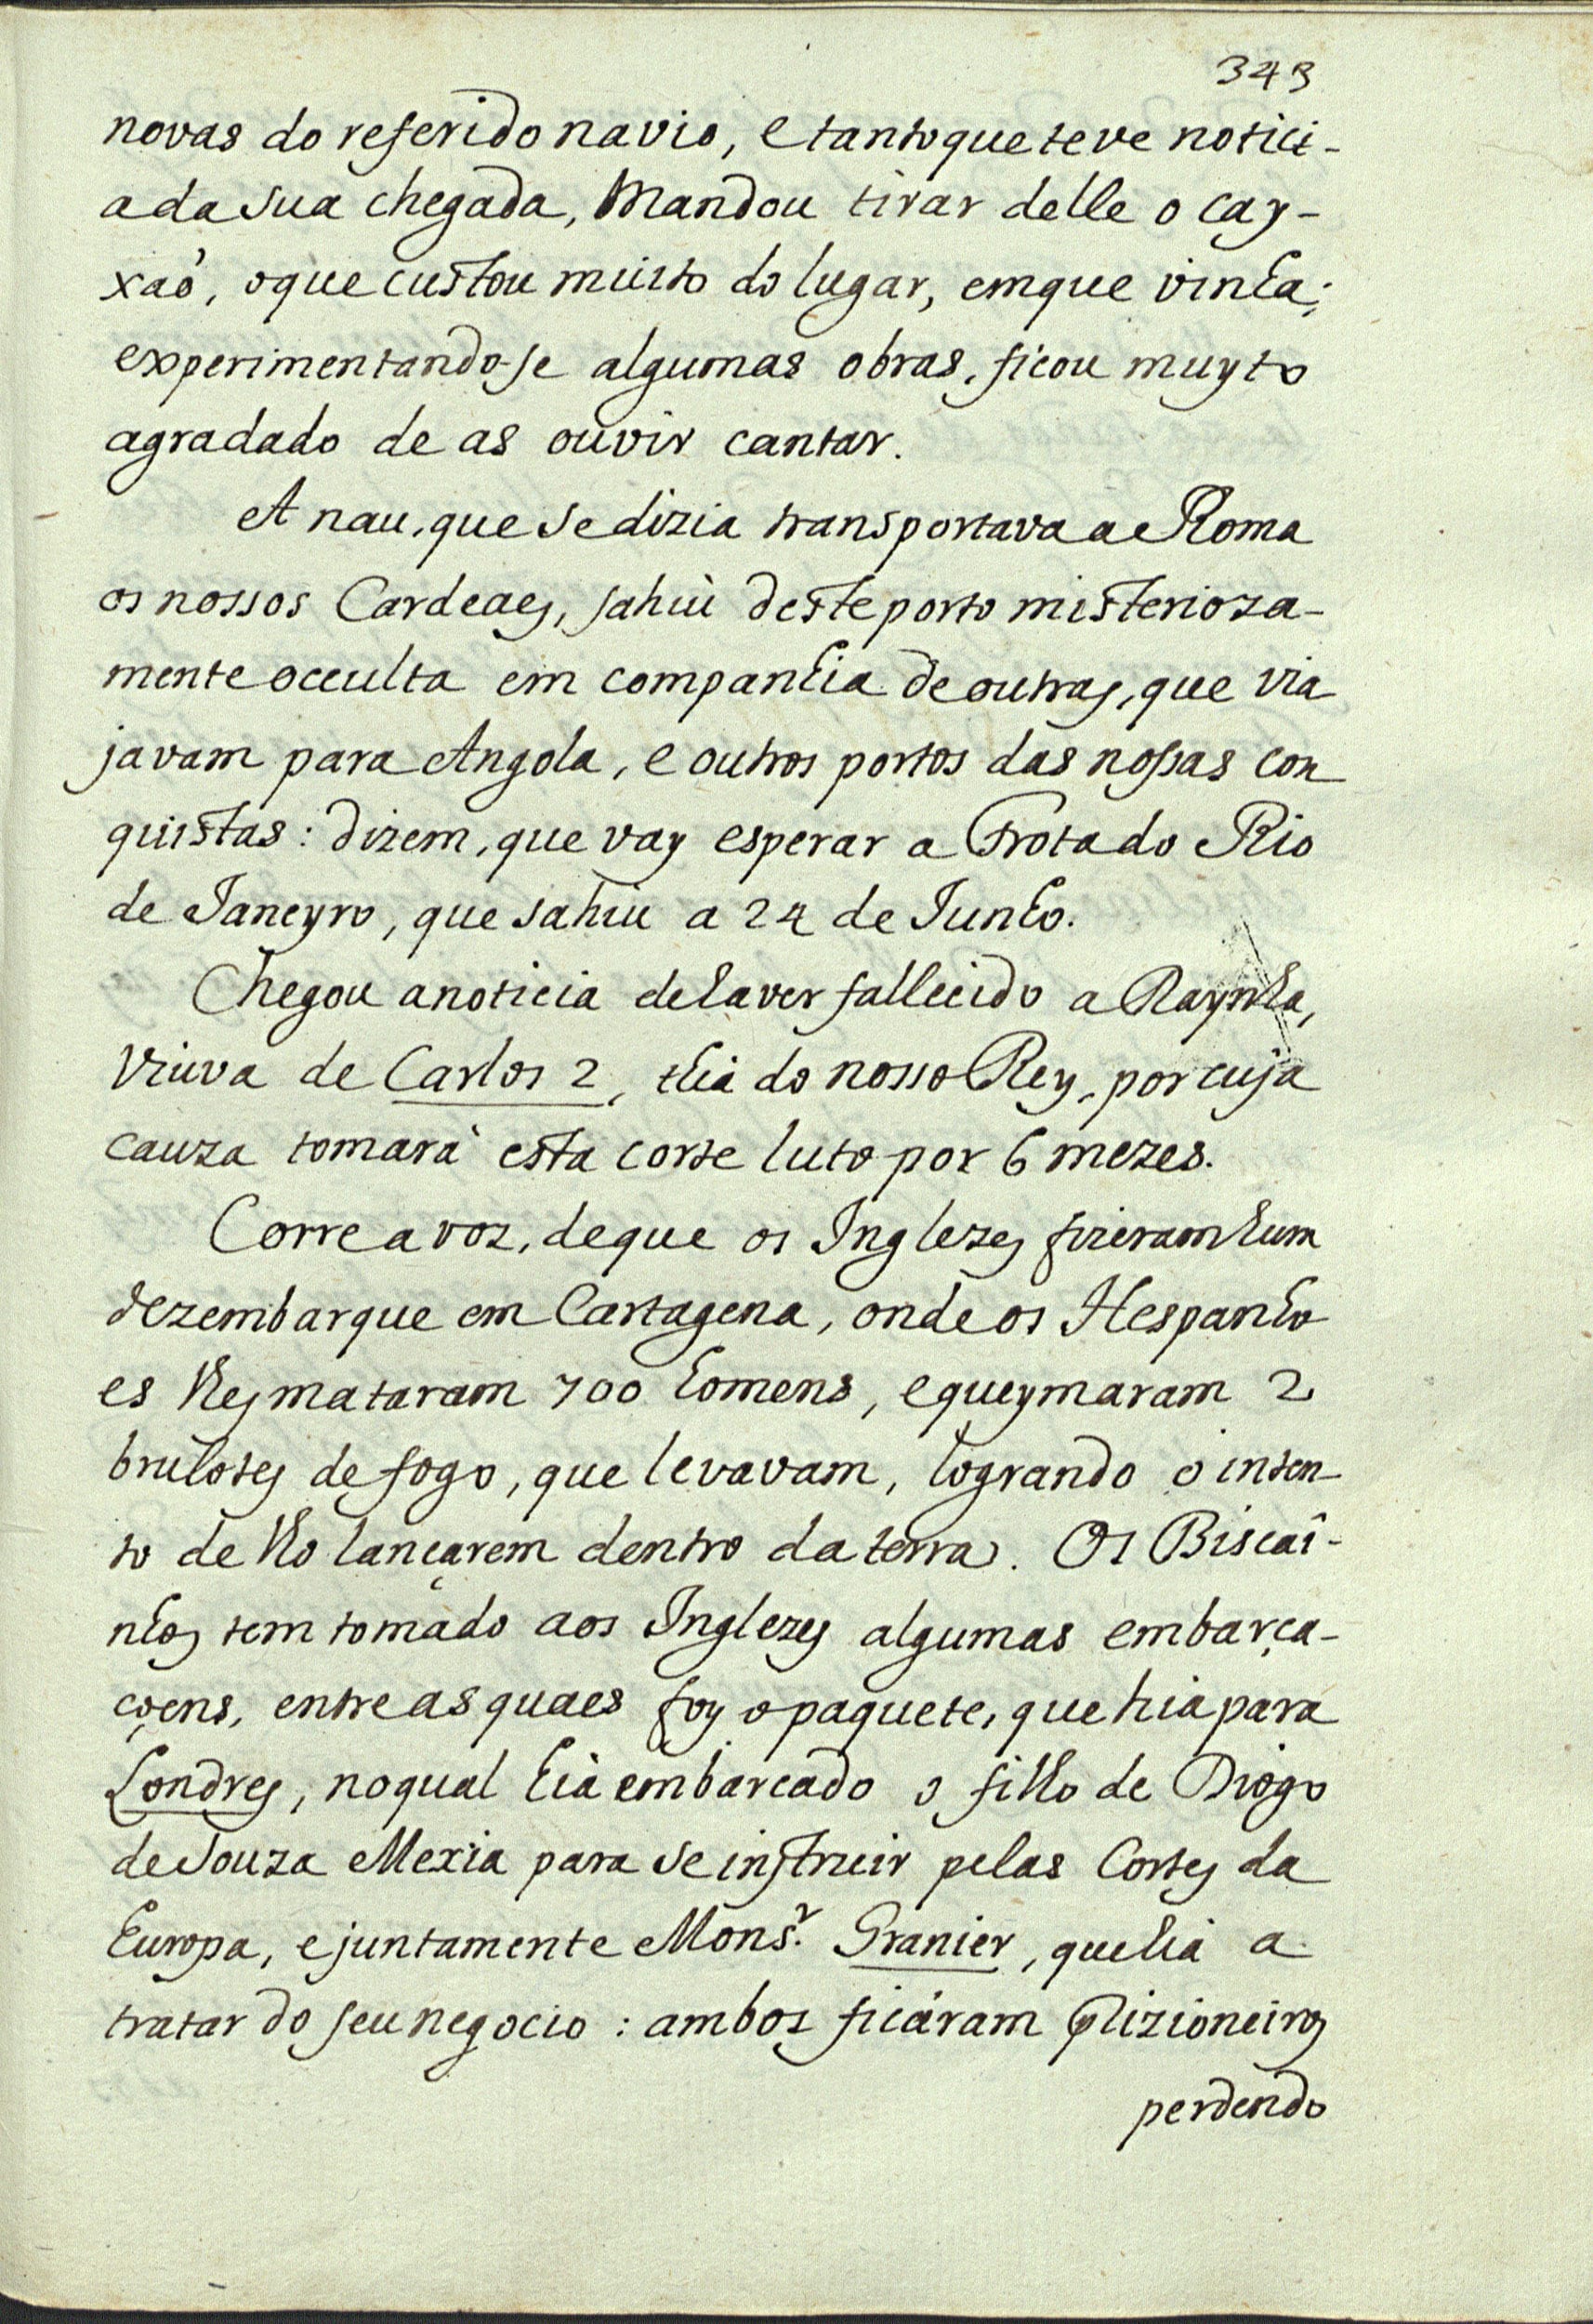 343
novas do referido navio, e tanto que teve notici-
a da sua chegada, Mandou tirar delle o cay-
xaò, o que custou muito do lugar, em que vinha;
experimentando-se algumas obras, ficou muyto
agradado de as ouvir cantar.
A nau, que se dizia transportava a Roma
os nossos Cardeaes, sahiu deste porto misterioza-
mente occulta em companhia de outras, que via
javam para Angola, e outros portos das nossas con
quistas: dizem, que vay esperar a Frota do Rio
de Janeyro, que sahiu a 24 de Junho.
Chegou a noticia de haver fallecido a Raynha,
Viuva de Carlos 2, thia do nosso Rey, por cuja
cauza tomarà esta corte luto por 6 mezes.
Corre a voz, de que os Inglezes fizeram hum
dezembarque em Cartagena, onde os Hespanho
es lhes mataram 700 homens, e queymaram 2
brulotes de fogo, que levavam, logrando o inten-
to de lho lançarem dentro da terra. Os Biscaî-
nhos tem tomado aos Inglezes algumas embarça-
çoens, entre as quaes foy o paquete, que hia para
Londres, no qual hià embarcado o filho de Diogo
de Souza Mexia para se instruir pelas Cortes da
Europa, e juntamente Monsr. Granier, que hia a
tratar do seu negocio: ambos ficáram prizioneiros
perdendo